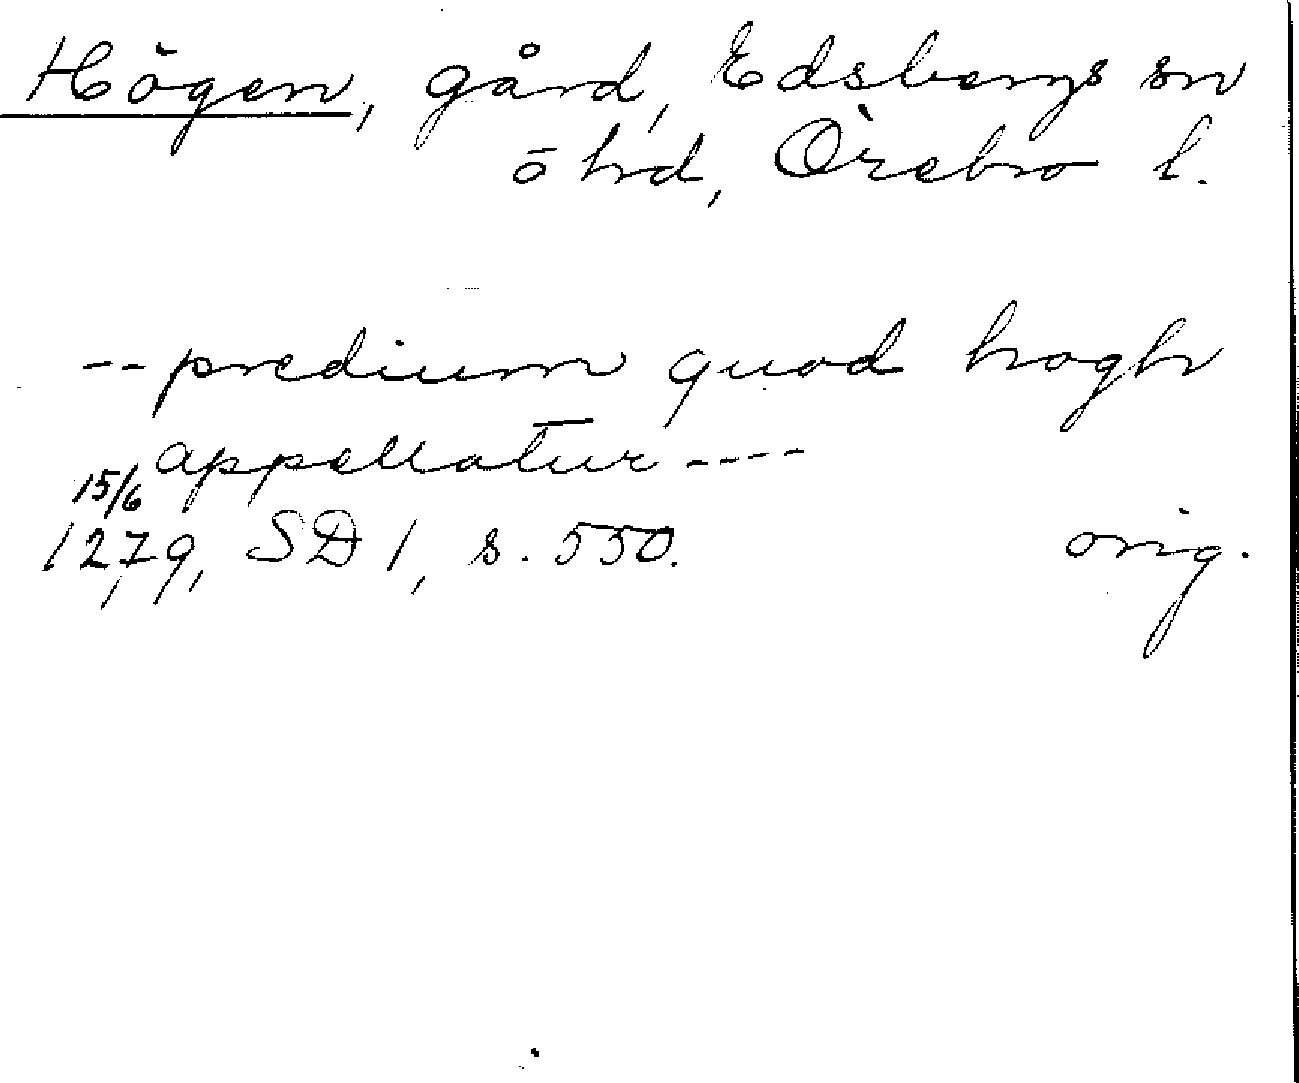 Högen, gård, Edsbergs sn
ö hd, Örebro l.
-- predium quod hogh
appellatur ----
15/6
1279, SD 1, s. 550. orig.